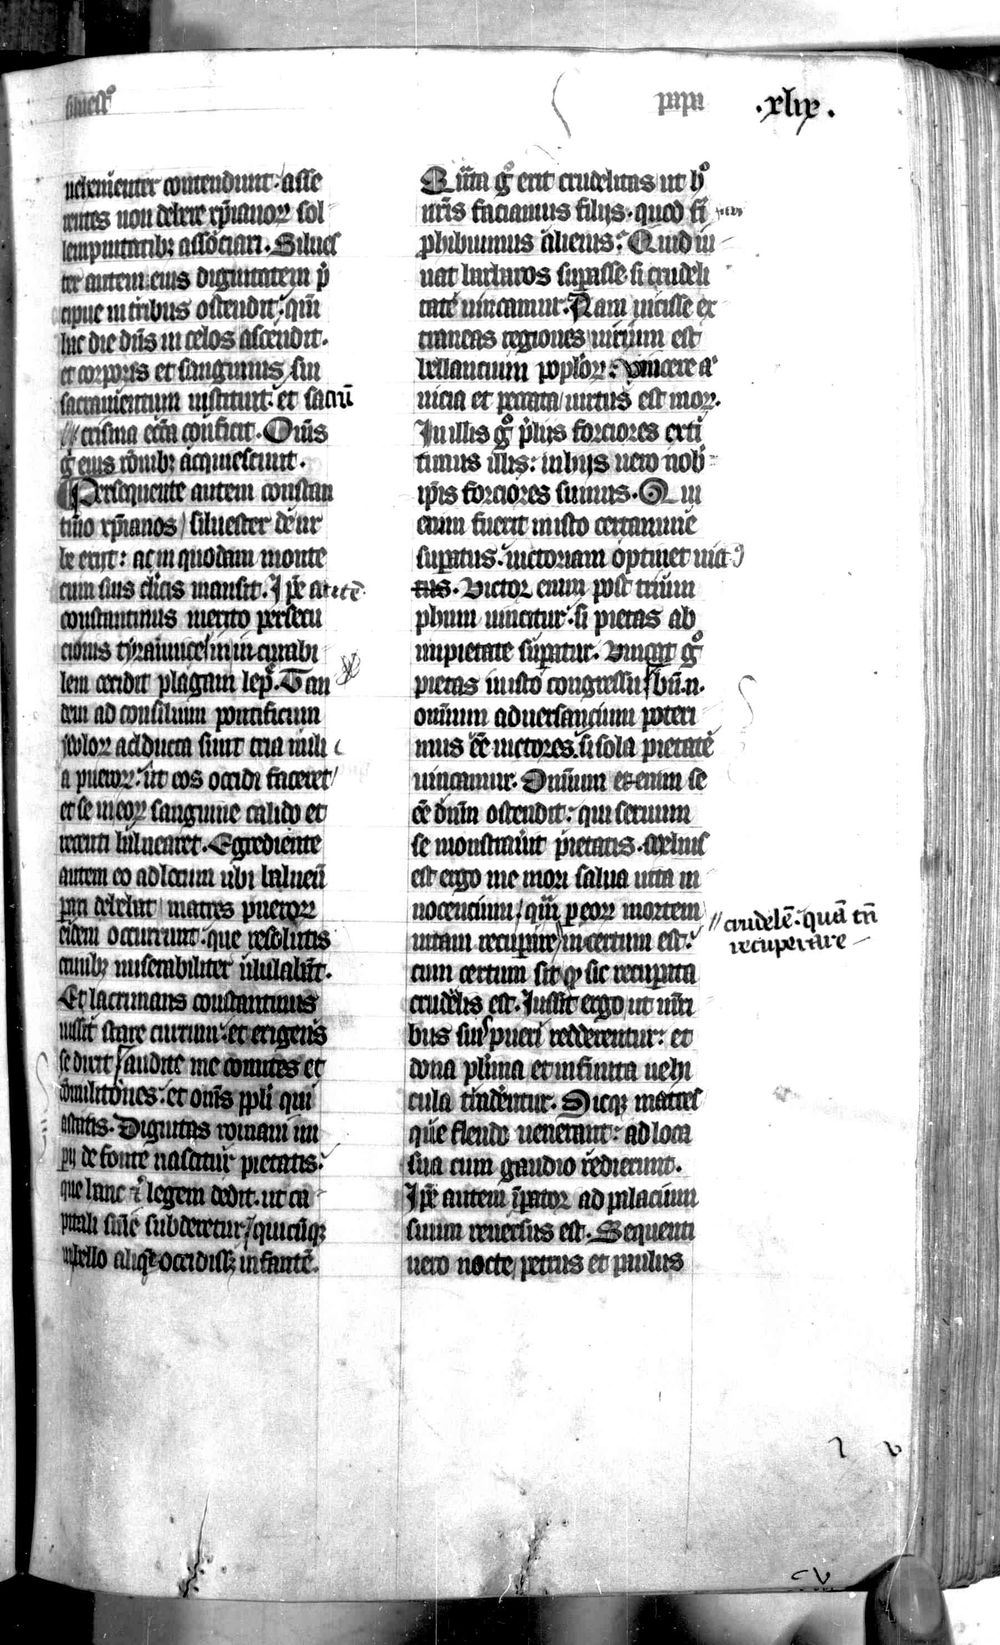 siluestº
papa
.xlix.
uehementer contendunt. asse
rentes non debere xp̄ianoꝝ sol
lempnitatibꝫ associari. Silues
ter autem eius dignitatem p̄
cipue in tribus ostendit. qm̄
hac die dn̄s in celos ascendit.
et corporis et sanguinis sui
sacramentum instituit. et sacrū
// crisma eccā conficit. Om̄s
g̊ eius rōnibꝫ acquiescunt.
Persequente autem constan
tino xp̄ianos / siluester de ur
be exijt: ac in quodam monte
cum suis clīcis mansit. Ip̄e autē
constantinus merito persecu
cionis tyrannice in incurabi
lem cecidit plagam lepͦ. Tan
dem ad consilium pontificum
ydoloꝝ adducta sunt tria mili
a pueroꝝ. ut eos occidi faceret /
et se in eoꝝ sanguine calido et
recenti balnearet. Egrediente
autem eo ad locum ubi balneū
pari debebat / matres pueroꝝ
eidem occurrunt. que resolutis
crinibꝫ miserabiliter ululabāt.
Et lacrimans constantinus
iussit stare currum. et erigens
se dixit / audite me comites et
cōmilitones. et om̄s ppl̄i qui
astatis. Dignitas romani im
perij de fonte nascitur pietatis.
que hanc ⁊ legem dedit. ut ca
pitali sn̄ie subderetur / quicūqꝫ
in bello aliqͥ occidissꝫ infantē.
Quāta g̊ erit crudelitas ut hͦ
nr̄is faciamus filijs. quod fi
ꝓhibuimus alienis. Quid iu
uat barbaros supasse si crudeli
tate uincamur. Nam uicisse ex
traneas regiones uirium est
bellancium popl̄oꝝ. Vincere aͥ
uicia et peccata / uirtus est moꝝ.
In illis g̊ p̄lijs forciores exti
timus illis: in hijs uero nob
ip̄is forciores sumus. Qui
enim fuerit in isto certamine
supatus. uictoriam optinet uict
tus. Victor enim post trium
phum uincitur. si pietas ab
impietate supatur. Vincat g̊
pietas in isto congressu / bn̄.n.
omnium aduersancium poteri
mus ēē uictores. si sola pietate
uincamur. Omnium etenim se
ēē dn̄m ostendit. qui seruum
se monstrauit pietatis. melius
est ergo me mori salua uita in
nocencium / qm̄ p eoꝝ mortem
uitam recuperare / incertum est.
// crudelē. quā tn̄
recuperare
cum certum sit ꝙ sic recuperata
crudelis est. Iussit ergo ut mr̄i
bus suis pueri redderentur: et
dona plīma et infinita uehi
cula tradērntur. Sicqꝫ matres
que flendo uenerant. ad loca
sua cum gaudio redierunt.
Ip̄e autem īpator ad palacium
suum reuersus est. Sequenti
uero nocte / petrus et paulus